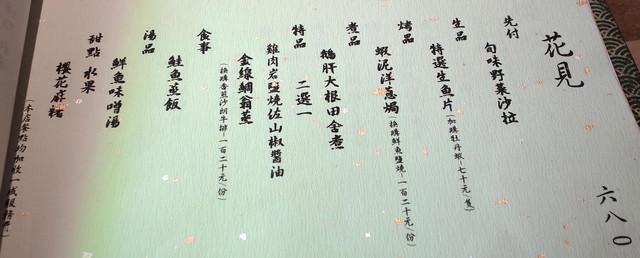 花見
六八〇
先付
旬味野菜沙拉
生品
特選生魚片(加購牡丹蝦-七十元/隻)
烤品
蝦泥洋蔥焗(換購鮮魚鹽燒-一百二十元/份)
煮品
鵝肝大根田舍煮
特品
二選一
雞肉岩鹽燒佐山椒醬油
金線鯛翁蒸
(換購香煎沙朗牛排-一百二十元/份)
食事
鮭魚蒸飯
湯品
鮮魚味噌湯
甜點
水果
櫻花麻糬
(本店餐點均加收一成服務費)